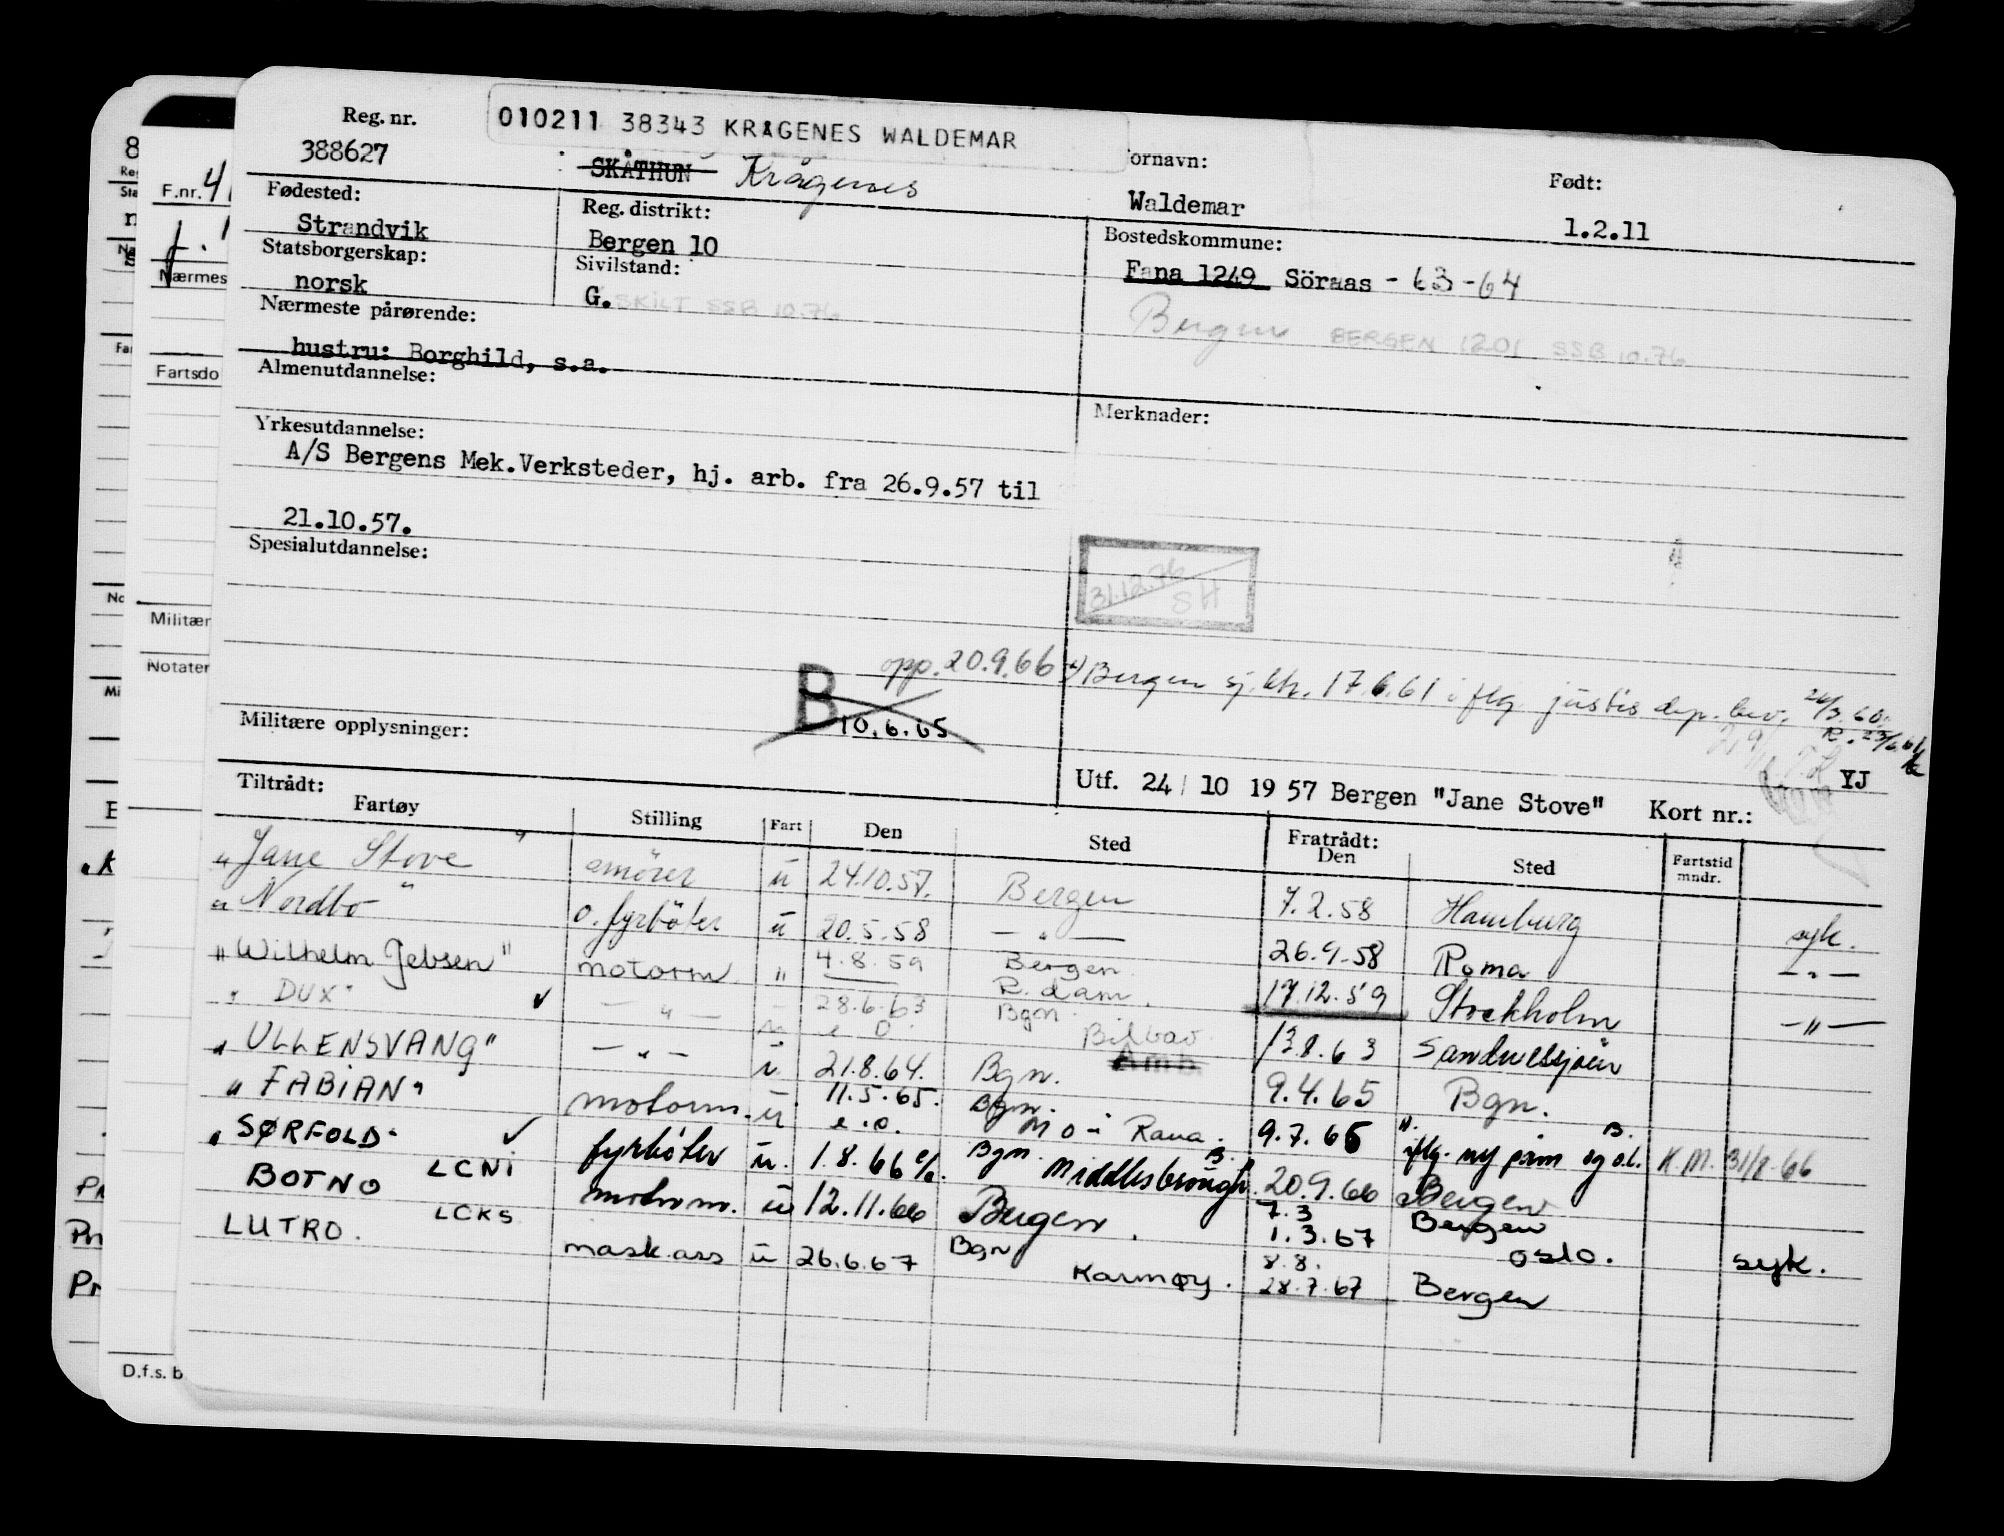 010211 38343 KRÅGENES WALDEMAR
Reg. nr.
388627
SKÅTHUN Krågenes
ornavn:
Waldemar
Født:
1.2.11
Fødested:
Strandvik
Reg. distrikt:
Bergen 10
Bostedskommune:
Fana 1249 Söraas - 63-64
Bergen BERGEN 1201 SSB 10.76
Statsborgerskap:
norsk
Sivilstand:
G. SKILT SSB 10.76
Nærmeste pårørende:
hustru: Borghild, s.a.
Almenutdannelse:
Merknader:
Yrkesutdannelse:
A/S Bergens Mek.Verksteder, hj. arb. fra 26.9.57 til
21.10.57.
Spesialutdannelse:
31.12.76
SH
opp. 20.9.66
Bergen sj.ktr. 17.6.61 i flg justis dep. bev. 24/3.60
R. 23/6.61
B
10.6.65
Militære opplysninger:
Utf. 24/10 1957 Bergen "Jane Stove" Kort nr.: YJ
Tiltrådt:
Fartøy Stilling Fart Den Sted Fratrådt: Den Sted Fartstid mndr.
"Jane Stove" smörer u 24.10.57. Bergen 7.2.58 Hamburg syk.
"Nordbo" o. fyrböter u 20.5.58 — " — 26.9.58 Roma — " —
"Wilhelm Jebsen" motorm. " 4.8.59 Bergen R.dam. 17.12.59 Stockholm — " —
"DUX" ✓ — " — 28.6.63 Bgn. Bilbao 13.8.63 Sandnessjøen
"ULLENSVANG" — " — u 21.8.64. Bgn. Amb. 9.4.65 Bgn.
"FABIAN" motorm. u 11.5.65. e.o. Bgn. Mo i Rana. 9.7.65 "
"SØRFOLD" ✓ fyrböter u. 1.8.66 Bgn. Middlesbrough. 20.9.66 Bergen K.M. 31/8-66
BOTNO LCNI motorm. u 12.11.66 Bergen. 7.3 1.3.67 Bergen Oslo. syk.
LUTRO. LCKS mask.ass u 26.6.67 Bgn Karmøy. 8.8. 28.7.67 Bergen
F.nr. 41
Nærmes
Fartsdo
Militær
Notater
D.f.s. b